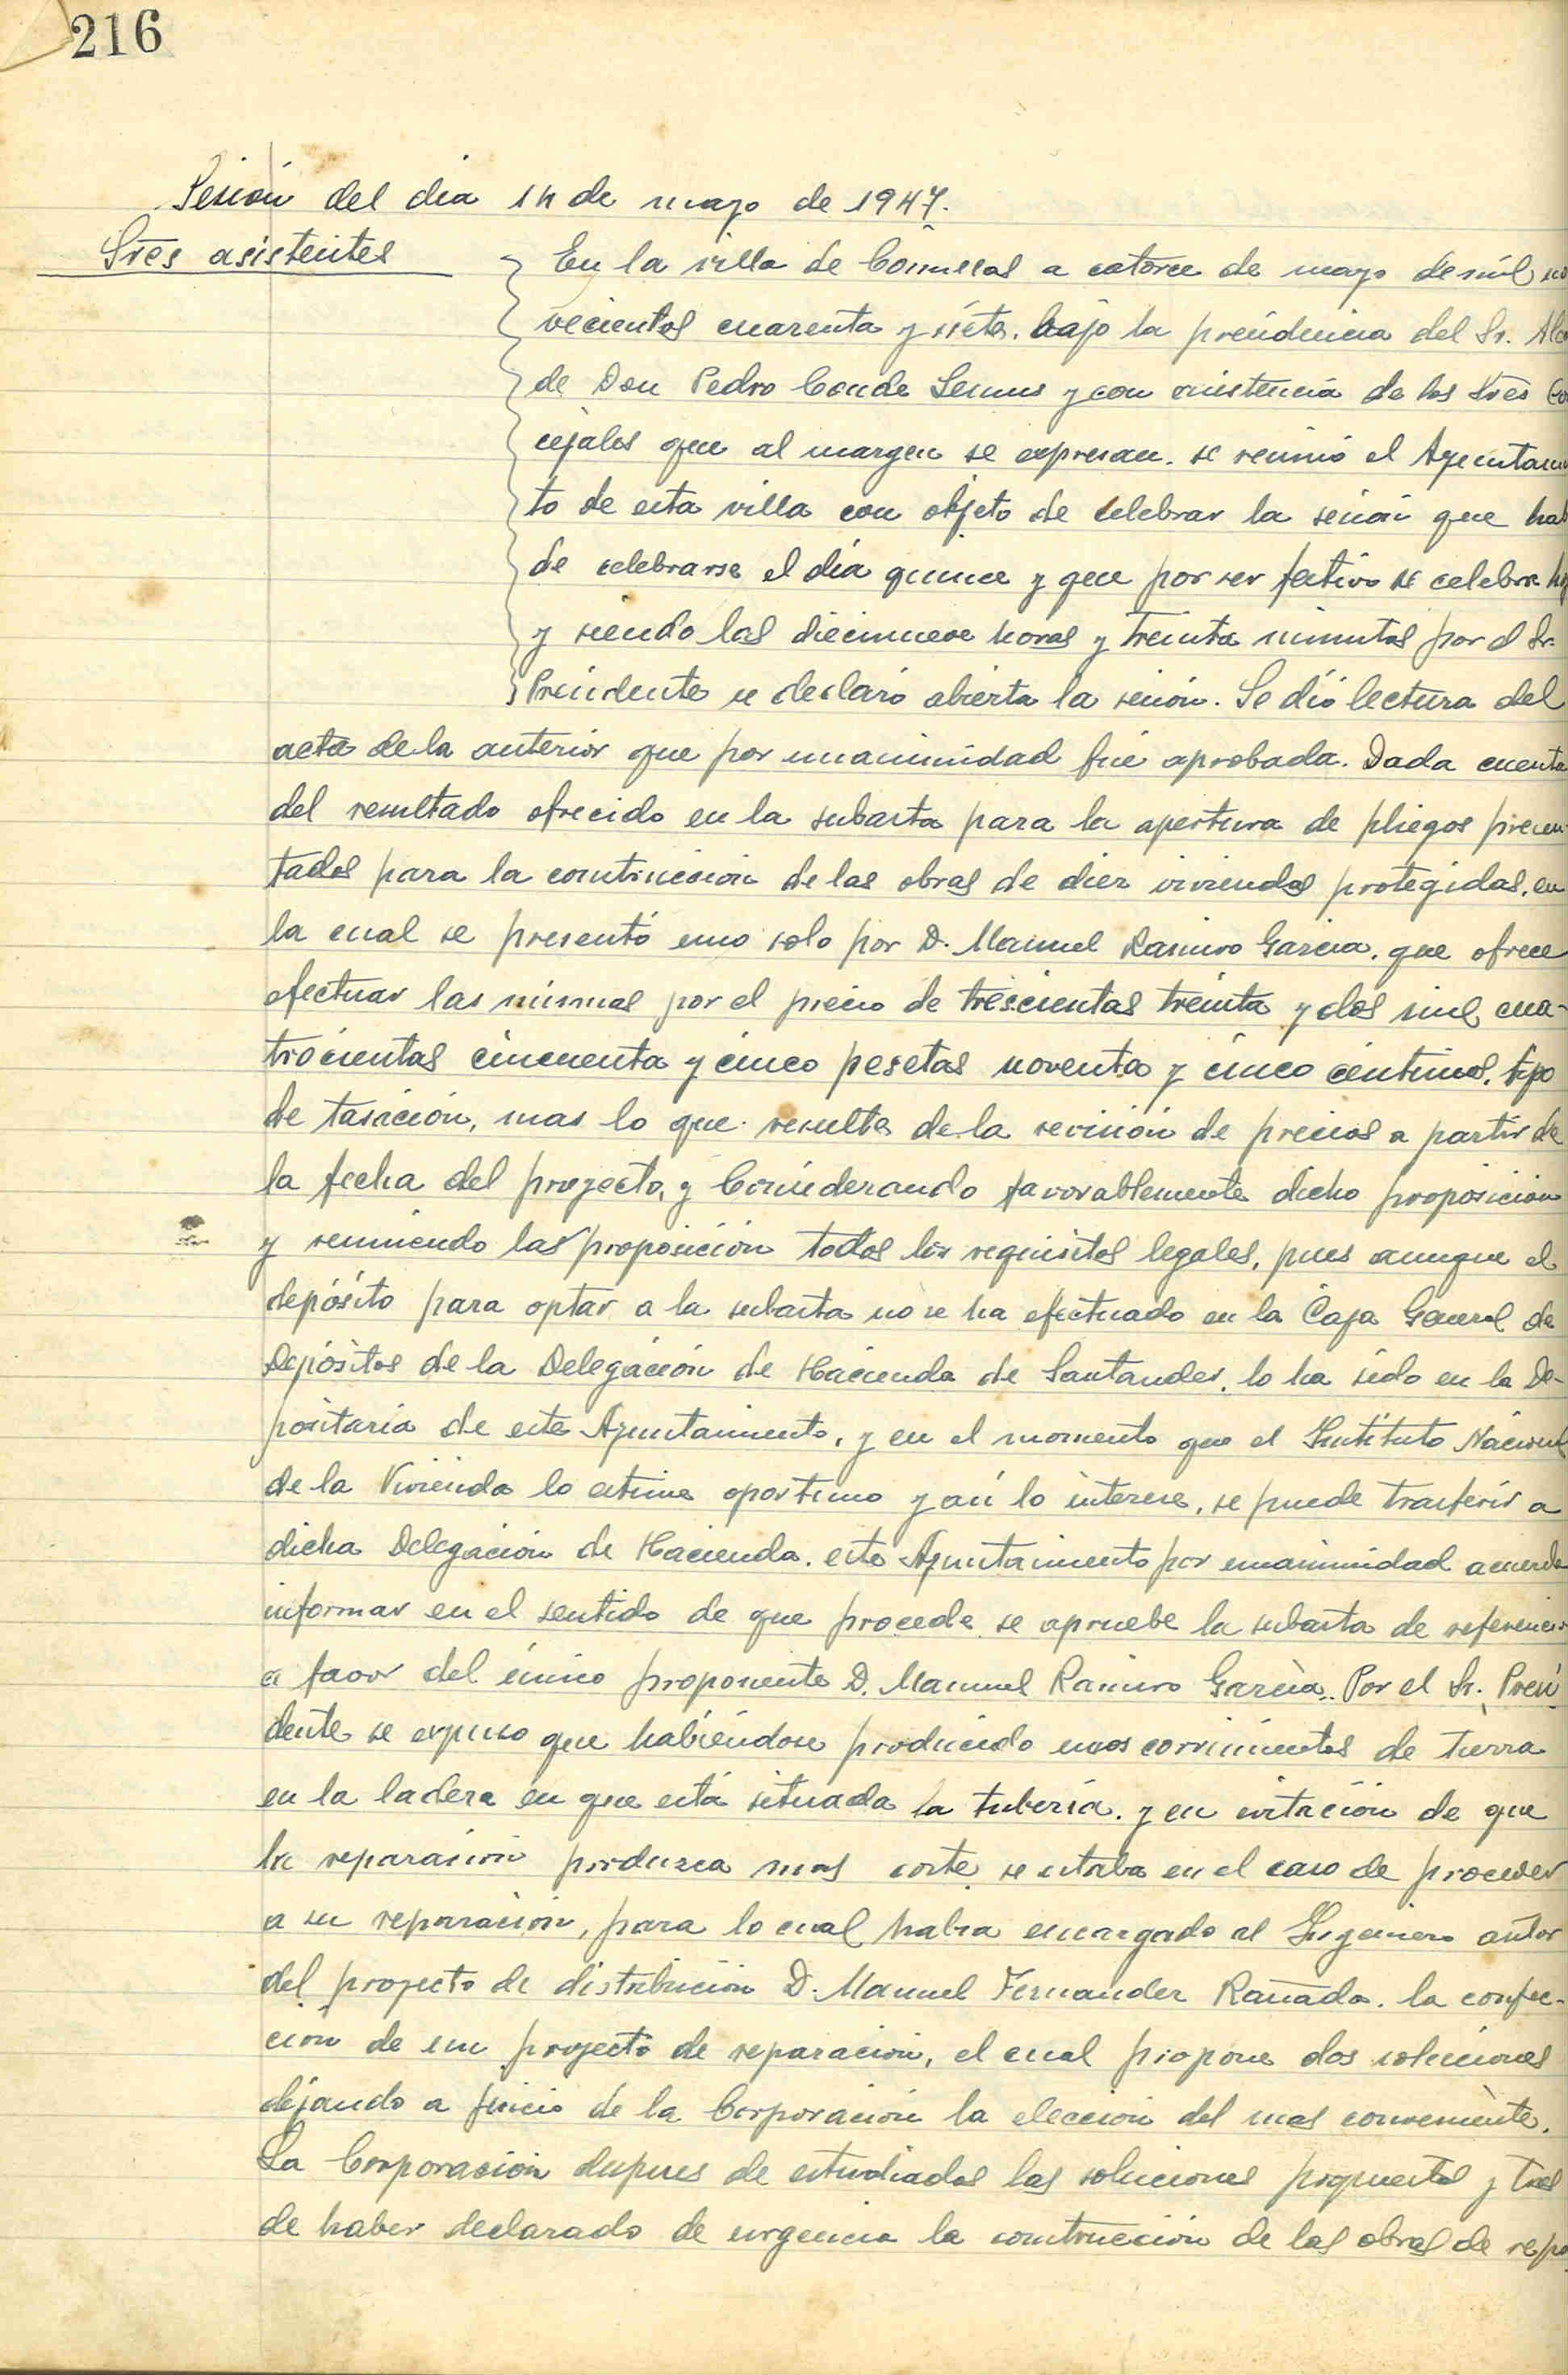 216
Sesión del dia 14 de mayo de 1947.
Sres asistentes
En la villa de Comillas a catorce de mayo de mil no
vecientos cuarenta y siete. bajo la presidencia del Sr. Alca
de Don Pedro Conde Lemus y con asistencia de los Sres Con
cejales que al margen se expresan. se reunió el Ayuntamien
to de esta villa con objeto de celebrar la sesión que hab
de celebrarse el día quince y que por ser festivo se celebra hoy
y siendo las diecinueve horas y treinta minutos por el Sr.
Presidente se declaró abierta la sesión. Se dió lectura del
acta de la anterior que por unanimidad fué aprobada. Dada cuenta
del resultado ofrecido en la subasta para la apertura de pliegos presen-
tados para la contrucción de las obras de diez viviendas protegidas, en
la cual se presentó uno solo por D. Manuel Ramiro Garcia, que ofrece
efectuar las mismas por el precio de trescientas treinta y dos mil cua-
trocientas cincuenta y cinco pesetas noventa y cinco centimos, tipo
de tasación, mas lo que resulte de la revisión de precios a partir de
la fecha del proyecto, y Considerando favorablemente dicho proposición
y reuniendo las proposición todos los requisitos legales, pues aunque el
depósito para optar a la subasta no se ha efectuado en la Caja General de
Depósitos de la Delegación de Hacienda de Santander, lo ha sido en la De-
positaria de este Ayuntamiento, y en el momento que el Instituto Nacional
de la Vivienda lo estime oportuno y asi lo interese, se puede trasferir a
dicha Delegación de Hacienda. este Ayuntamiento por unanimidad acuerda
informar en el sentido de que procede se apruebe la subasta de referencia
a favor del único proponente D. Manuel Ramiro Garcìa. Por el Sr. Presi
dente se expuso que habiéndose producido unos corrimientos de tierra
en la ladera en que está situada la tubería. y en evitación de que
la reparación produzca mas corte se estaba en el caso de proceder
a su reparación, para lo cual habia encargado al Ingeniero autor
del proyecto de distribución D. Manuel Fernandez Rañada. la confec-
ción de un proyecto de reparación, el cual propone dos soluciones
dejando a juicio de la Corporación la elección del mas conveniente.
La Corporación depues de estudiadas las soluciones propuestas y tras
de haber declarado de urgencia la contrucción de las obras de repa